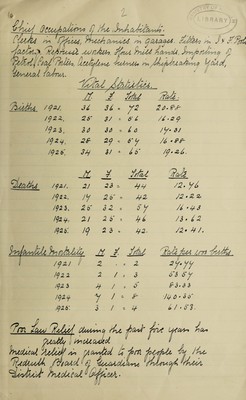 2
LIBRARY
Chief Occupations of the Inhabitants.
Clerks in Offices, Mechanics in Garages. Fitters in
factory. Rephouse workers. Flour Mill hands, Importing of
Petrol, Acetylene burners in Shipbreaking Yard,
General labour.
Vital Statistics.
M F Total Rate
Births 1921. 36 36 = 72 20.88
1922. 25 31 = 56 16.29
1923. 30 30 = 60 17.31
1924. 28 29 = 57 16.88
1925. 34 31 = 65 19.26.
M F Total Rate
Deaths 1921. 21 23 = 44 12.76
1922. 17 25 = 42 12.22
1923. 25 32 = 57 16.43
1924. 21 25 = 46 13.62
1925. 19 23 = 42 12.41.
Infantile Mortality M F Total Rate per 1000 births.
1921 2 . . 2 27.77
1922 2 1 . 3 53.57
1923 4 1 . 5 83.33
1924 7 1 = 8 140.35
1925. 3 1 = 4 61.53.
Poor Law Relief during the past five years has
greatly increased
Medical relief is granted to poor people by the
Redruth Board of Guardians through their
District Medical Officer.